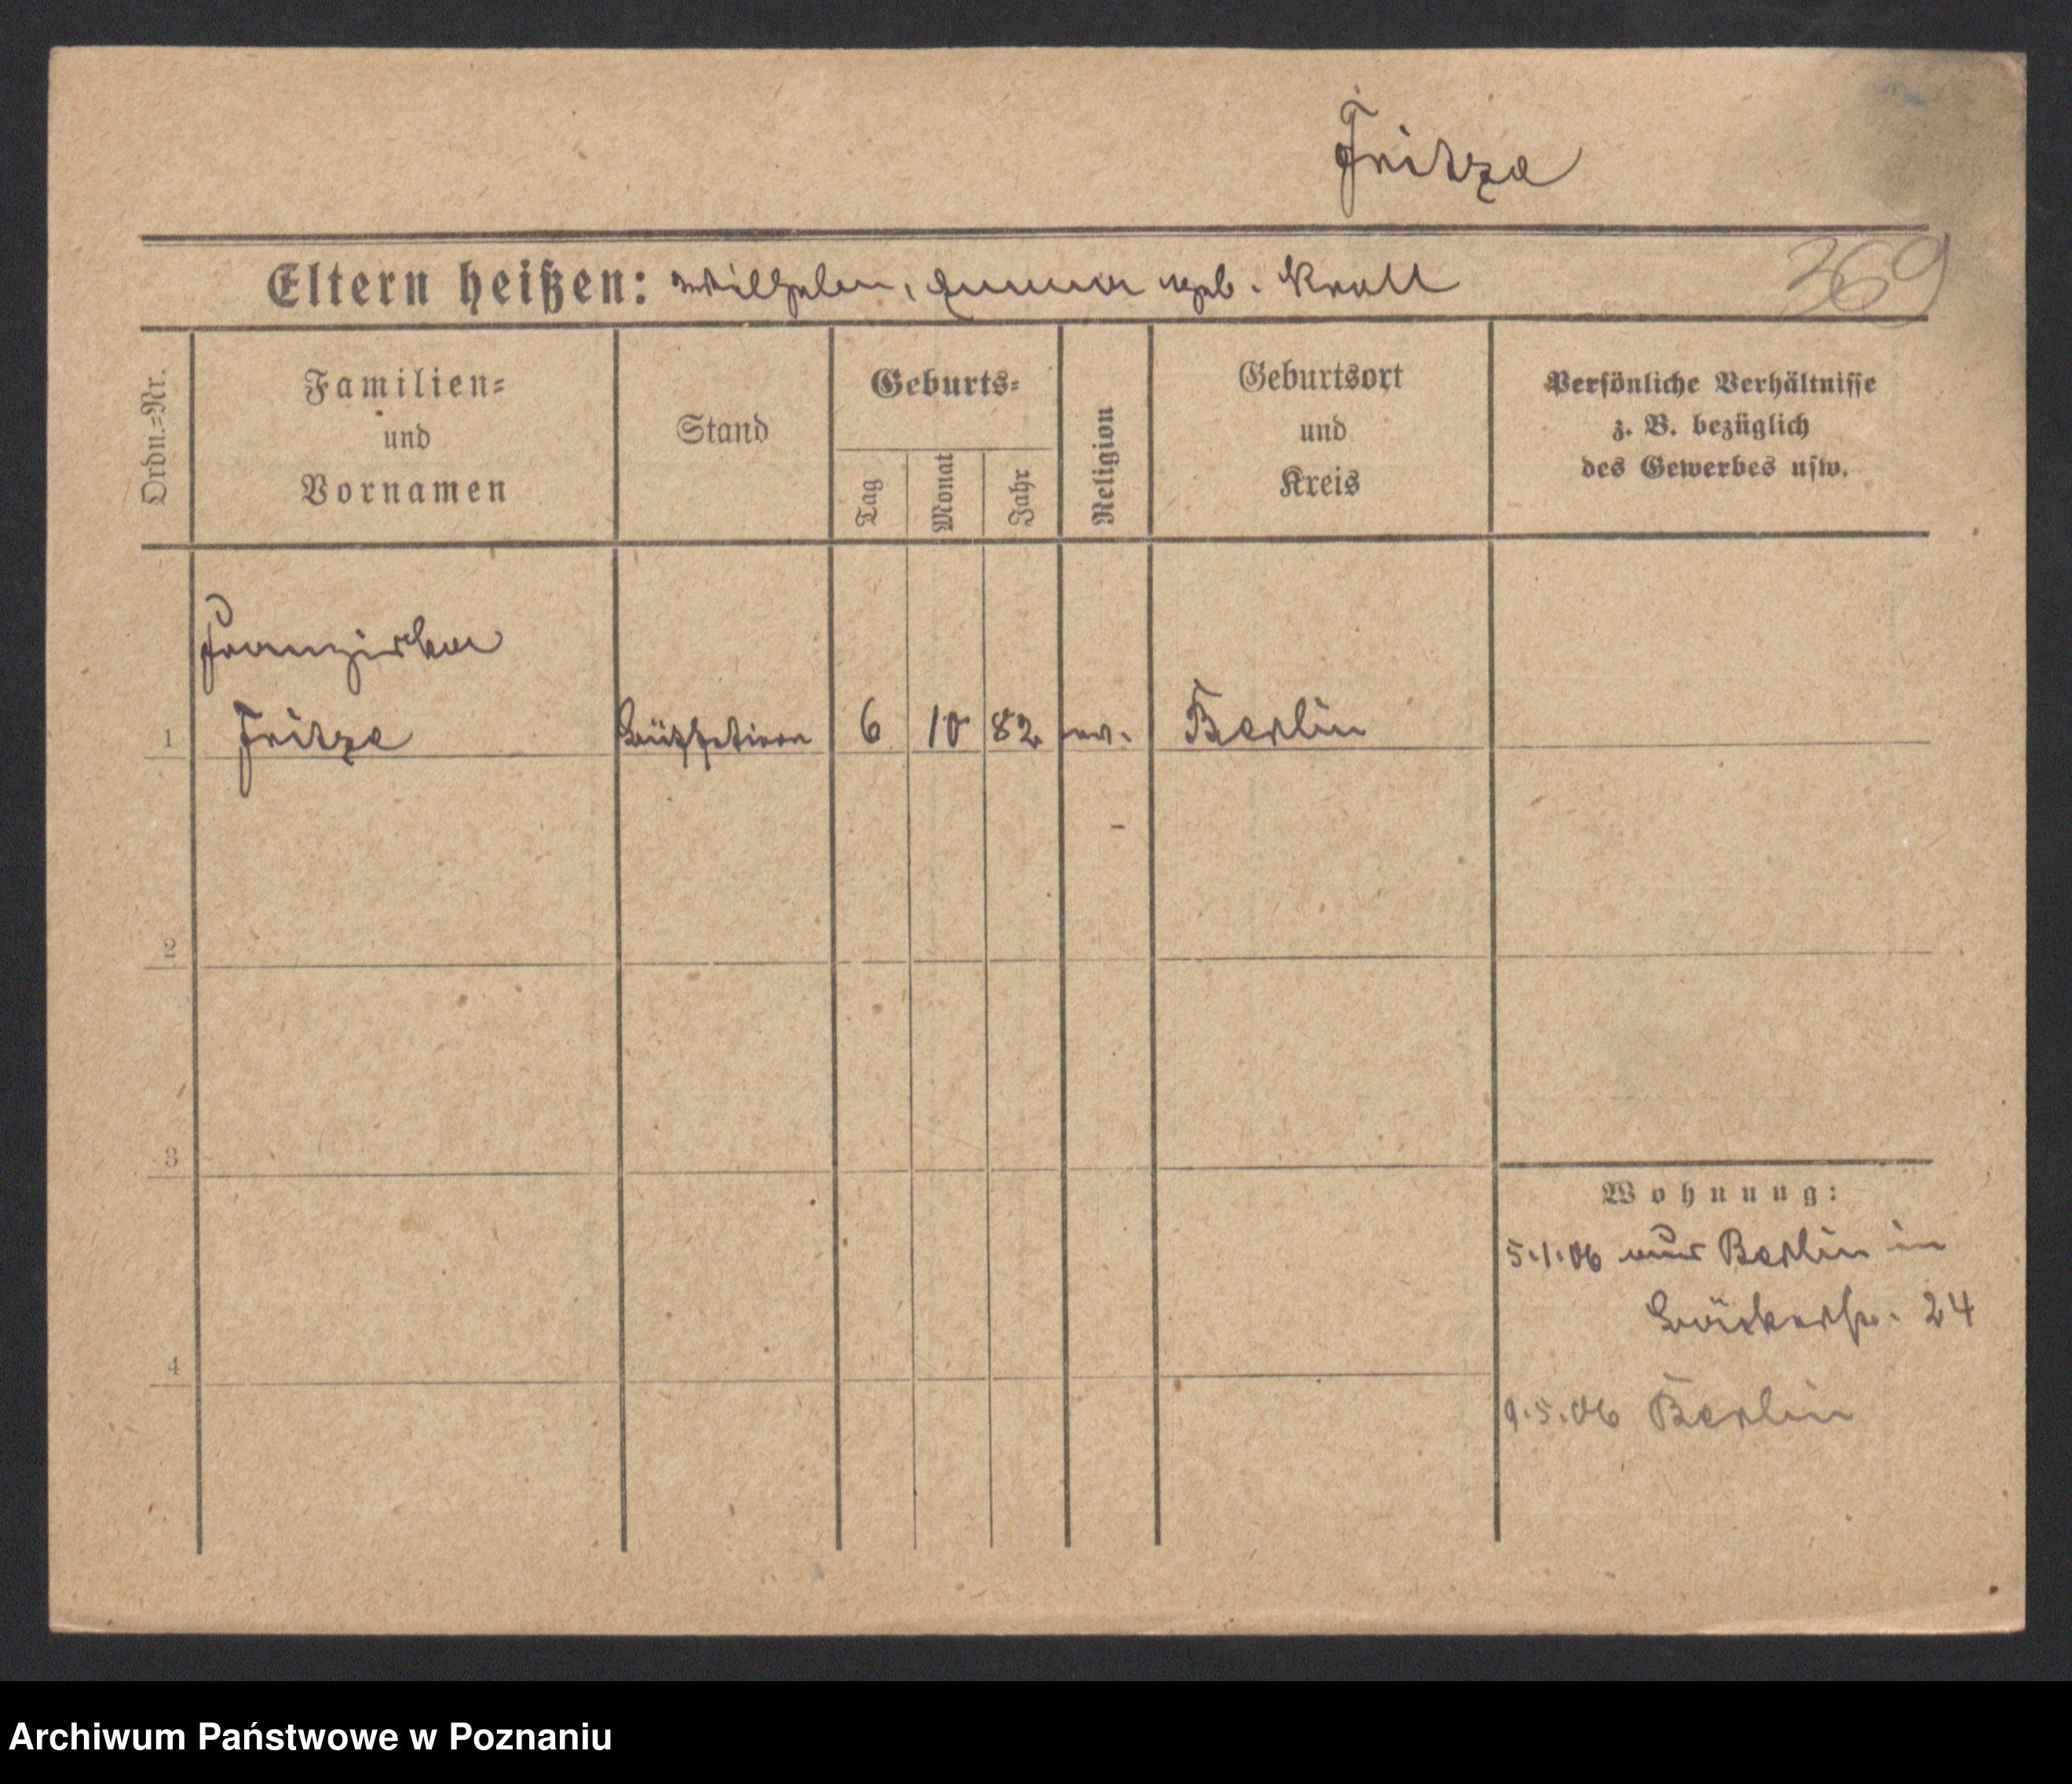 Fritze
Eltern heißen: Wilhelm, Emma geb. Kroll
369
Ordn.=Nr.
Familien=
und
Vornamen
Stand
Geburts=
Tag
Monat
Jahr
Religion
Geburtsort
und
Kreis
Persönliche Verhältnisse
z. B. bezüglich
des Gewerbes usw.
Franziska
1 Fritze 6 10 82 ev. Berlin
2
3
Wohnung:
5.1.06 aus Berlin in
Bäckerstr. 24
4
9.5.06 Berlin
Archiwum Państwowe w Poznaniu